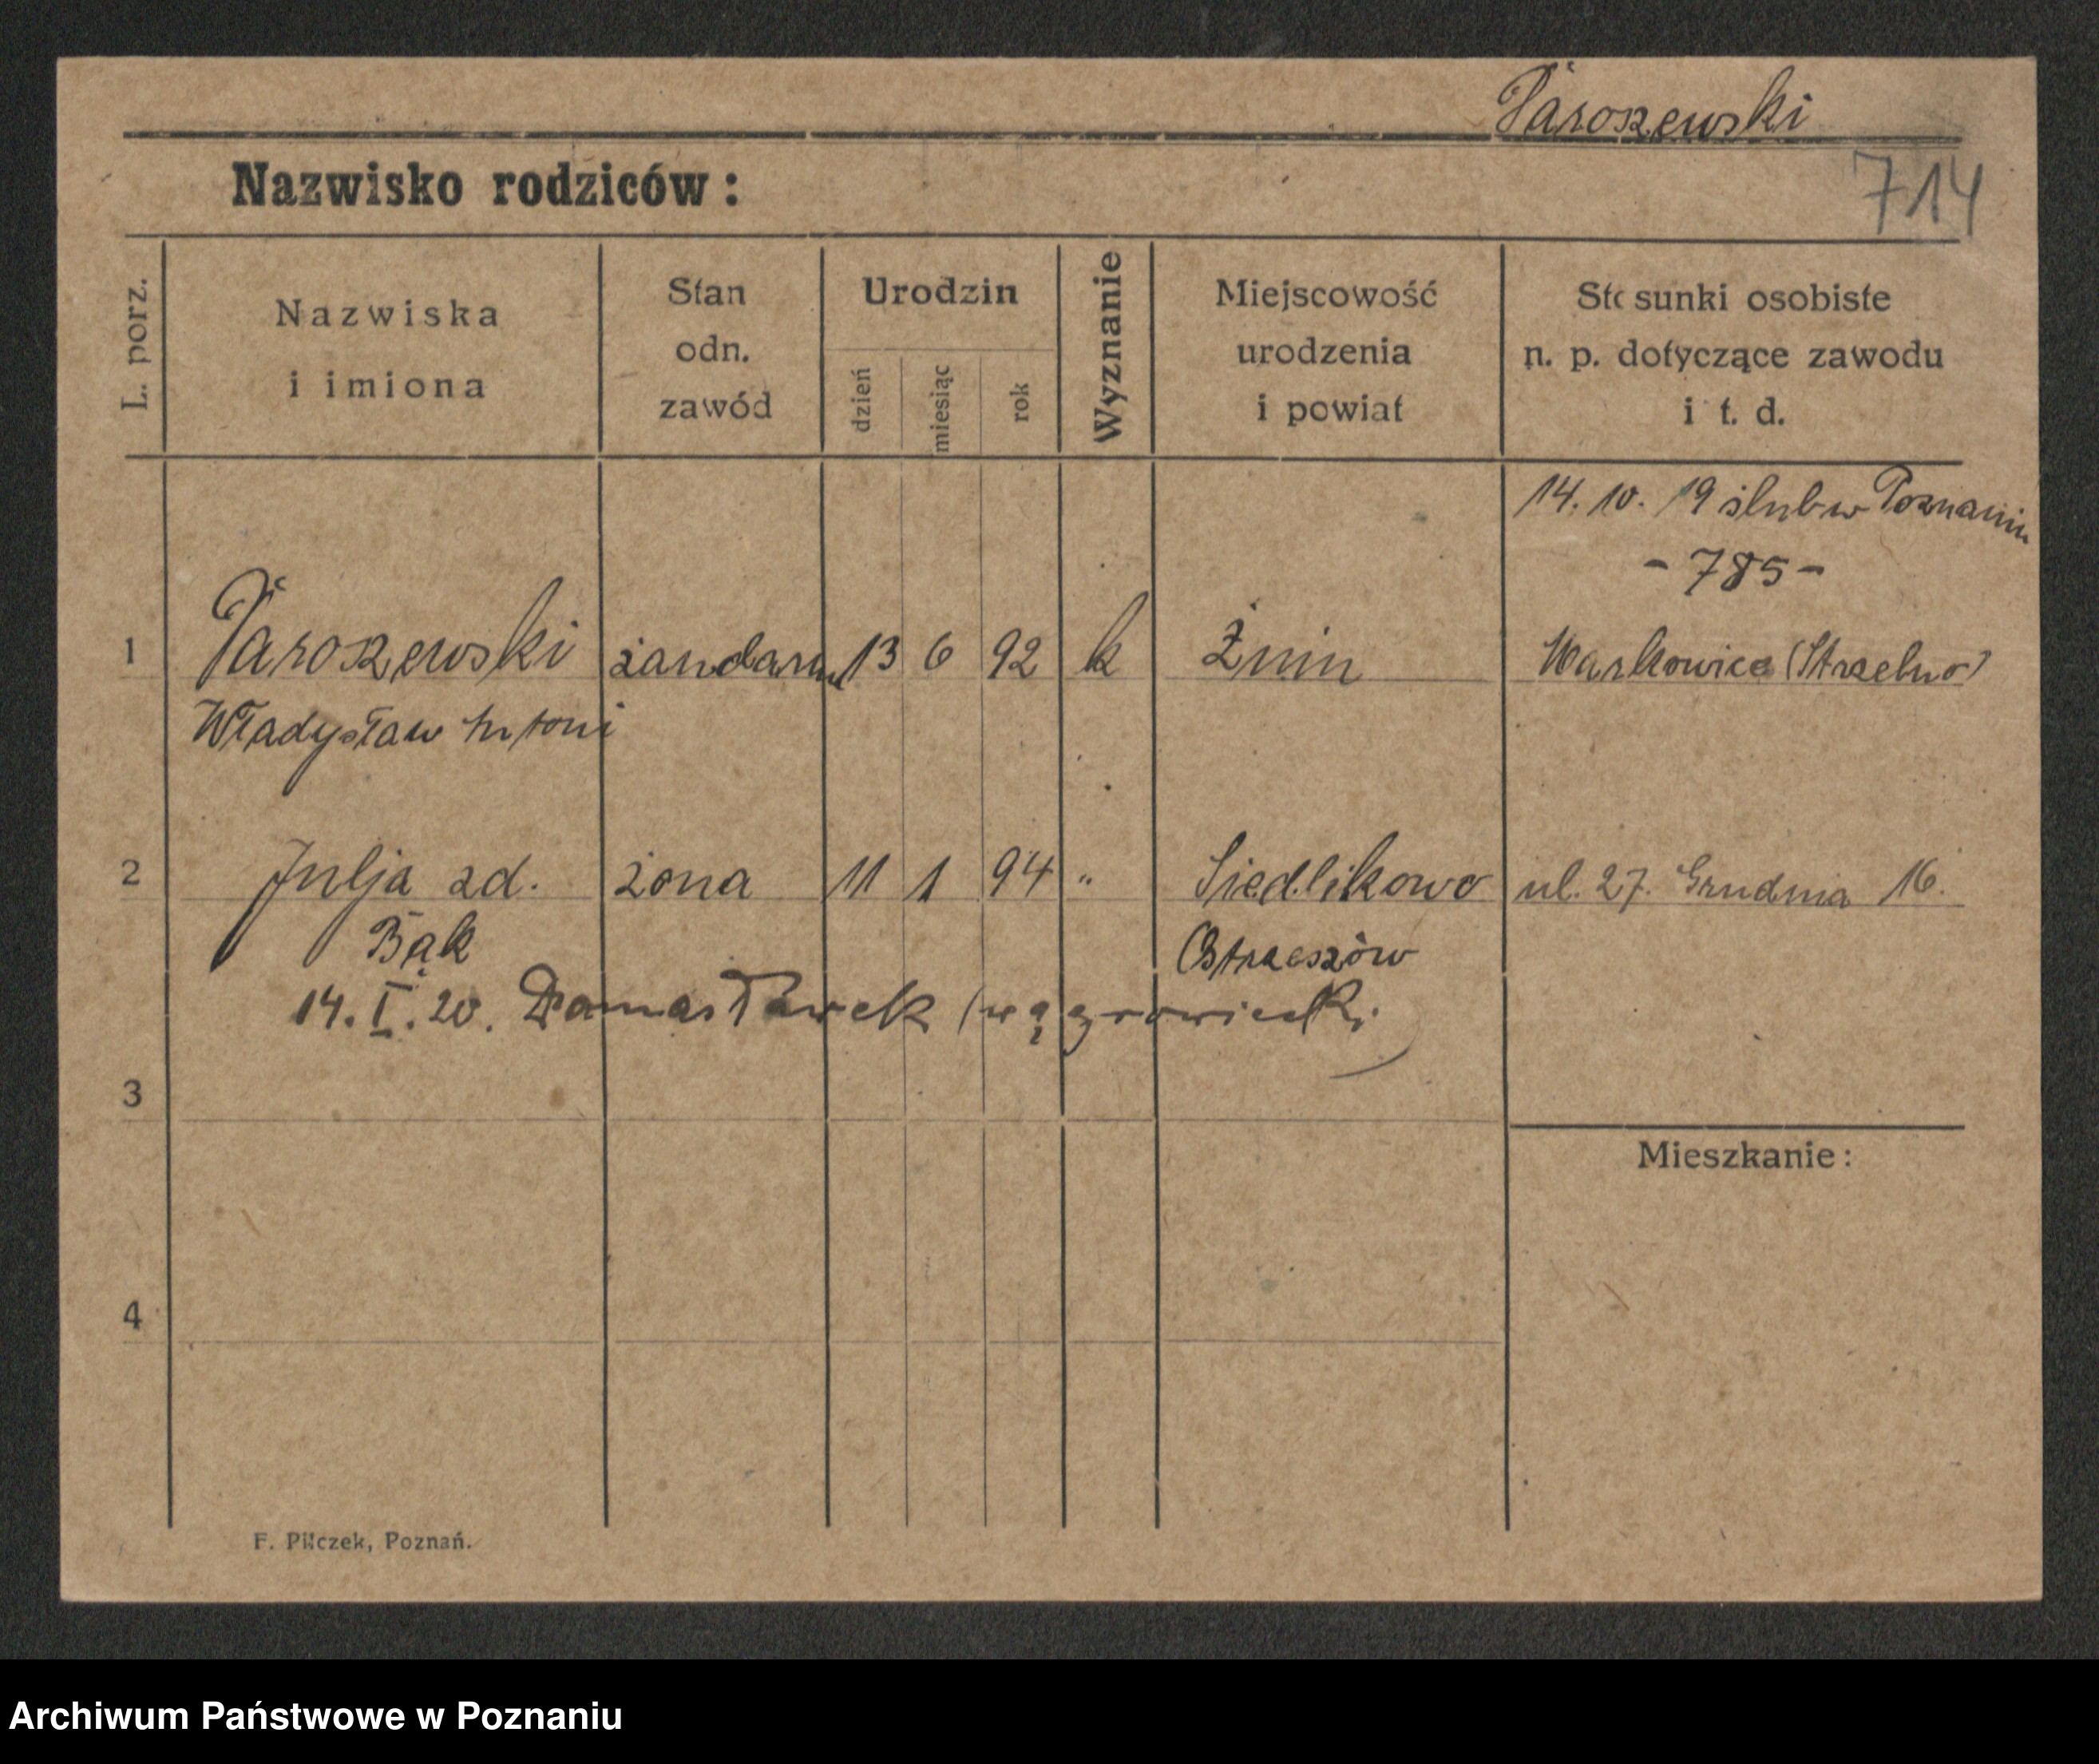 Jaroszewski
Nazwisko rodziców :
714
L. porz.
Nazwiska
i imiona
Stan
odn.
zawód
Urodzin
dzień
miesiąc
rok
Wyznanie
Miejscowość
urodzenia
i powiat
Stosunki osobiste
n. p. dotyczące zawodu
i t. d.
14. 10. 19 ślub w Poznaniu
- 785 -
1 Jaroszewski żandarm 13 6 92 k Żnin Markowice (Strzelno)
Władysław Antoni
2 Julja zd. żona 11 1 94 " Siedlikowo ul. 27. Grudnia 16.
Bąk Ostrzeszów
14. I. 20. Damasławek (wągrowiecki)
3
Mieszkanie :
4
F. Pilczek, Poznań.
Archiwum Państwowe w Poznaniu